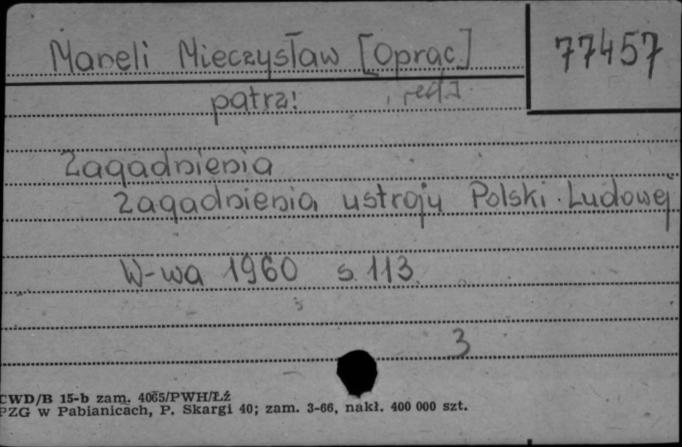 Maneli Mieczysław [Oprac.]
77457
patrz: i red.]
Zagadnienia
Zagadnienia ustroju Polski Ludowej
W-wa 1960 s. 113
3
CWD/B 15-b zam. 4065/PWH/Łź
PZG w Pabianicach, P. Skargi 40; zam. 3-66, nakł. 400 000 szt.